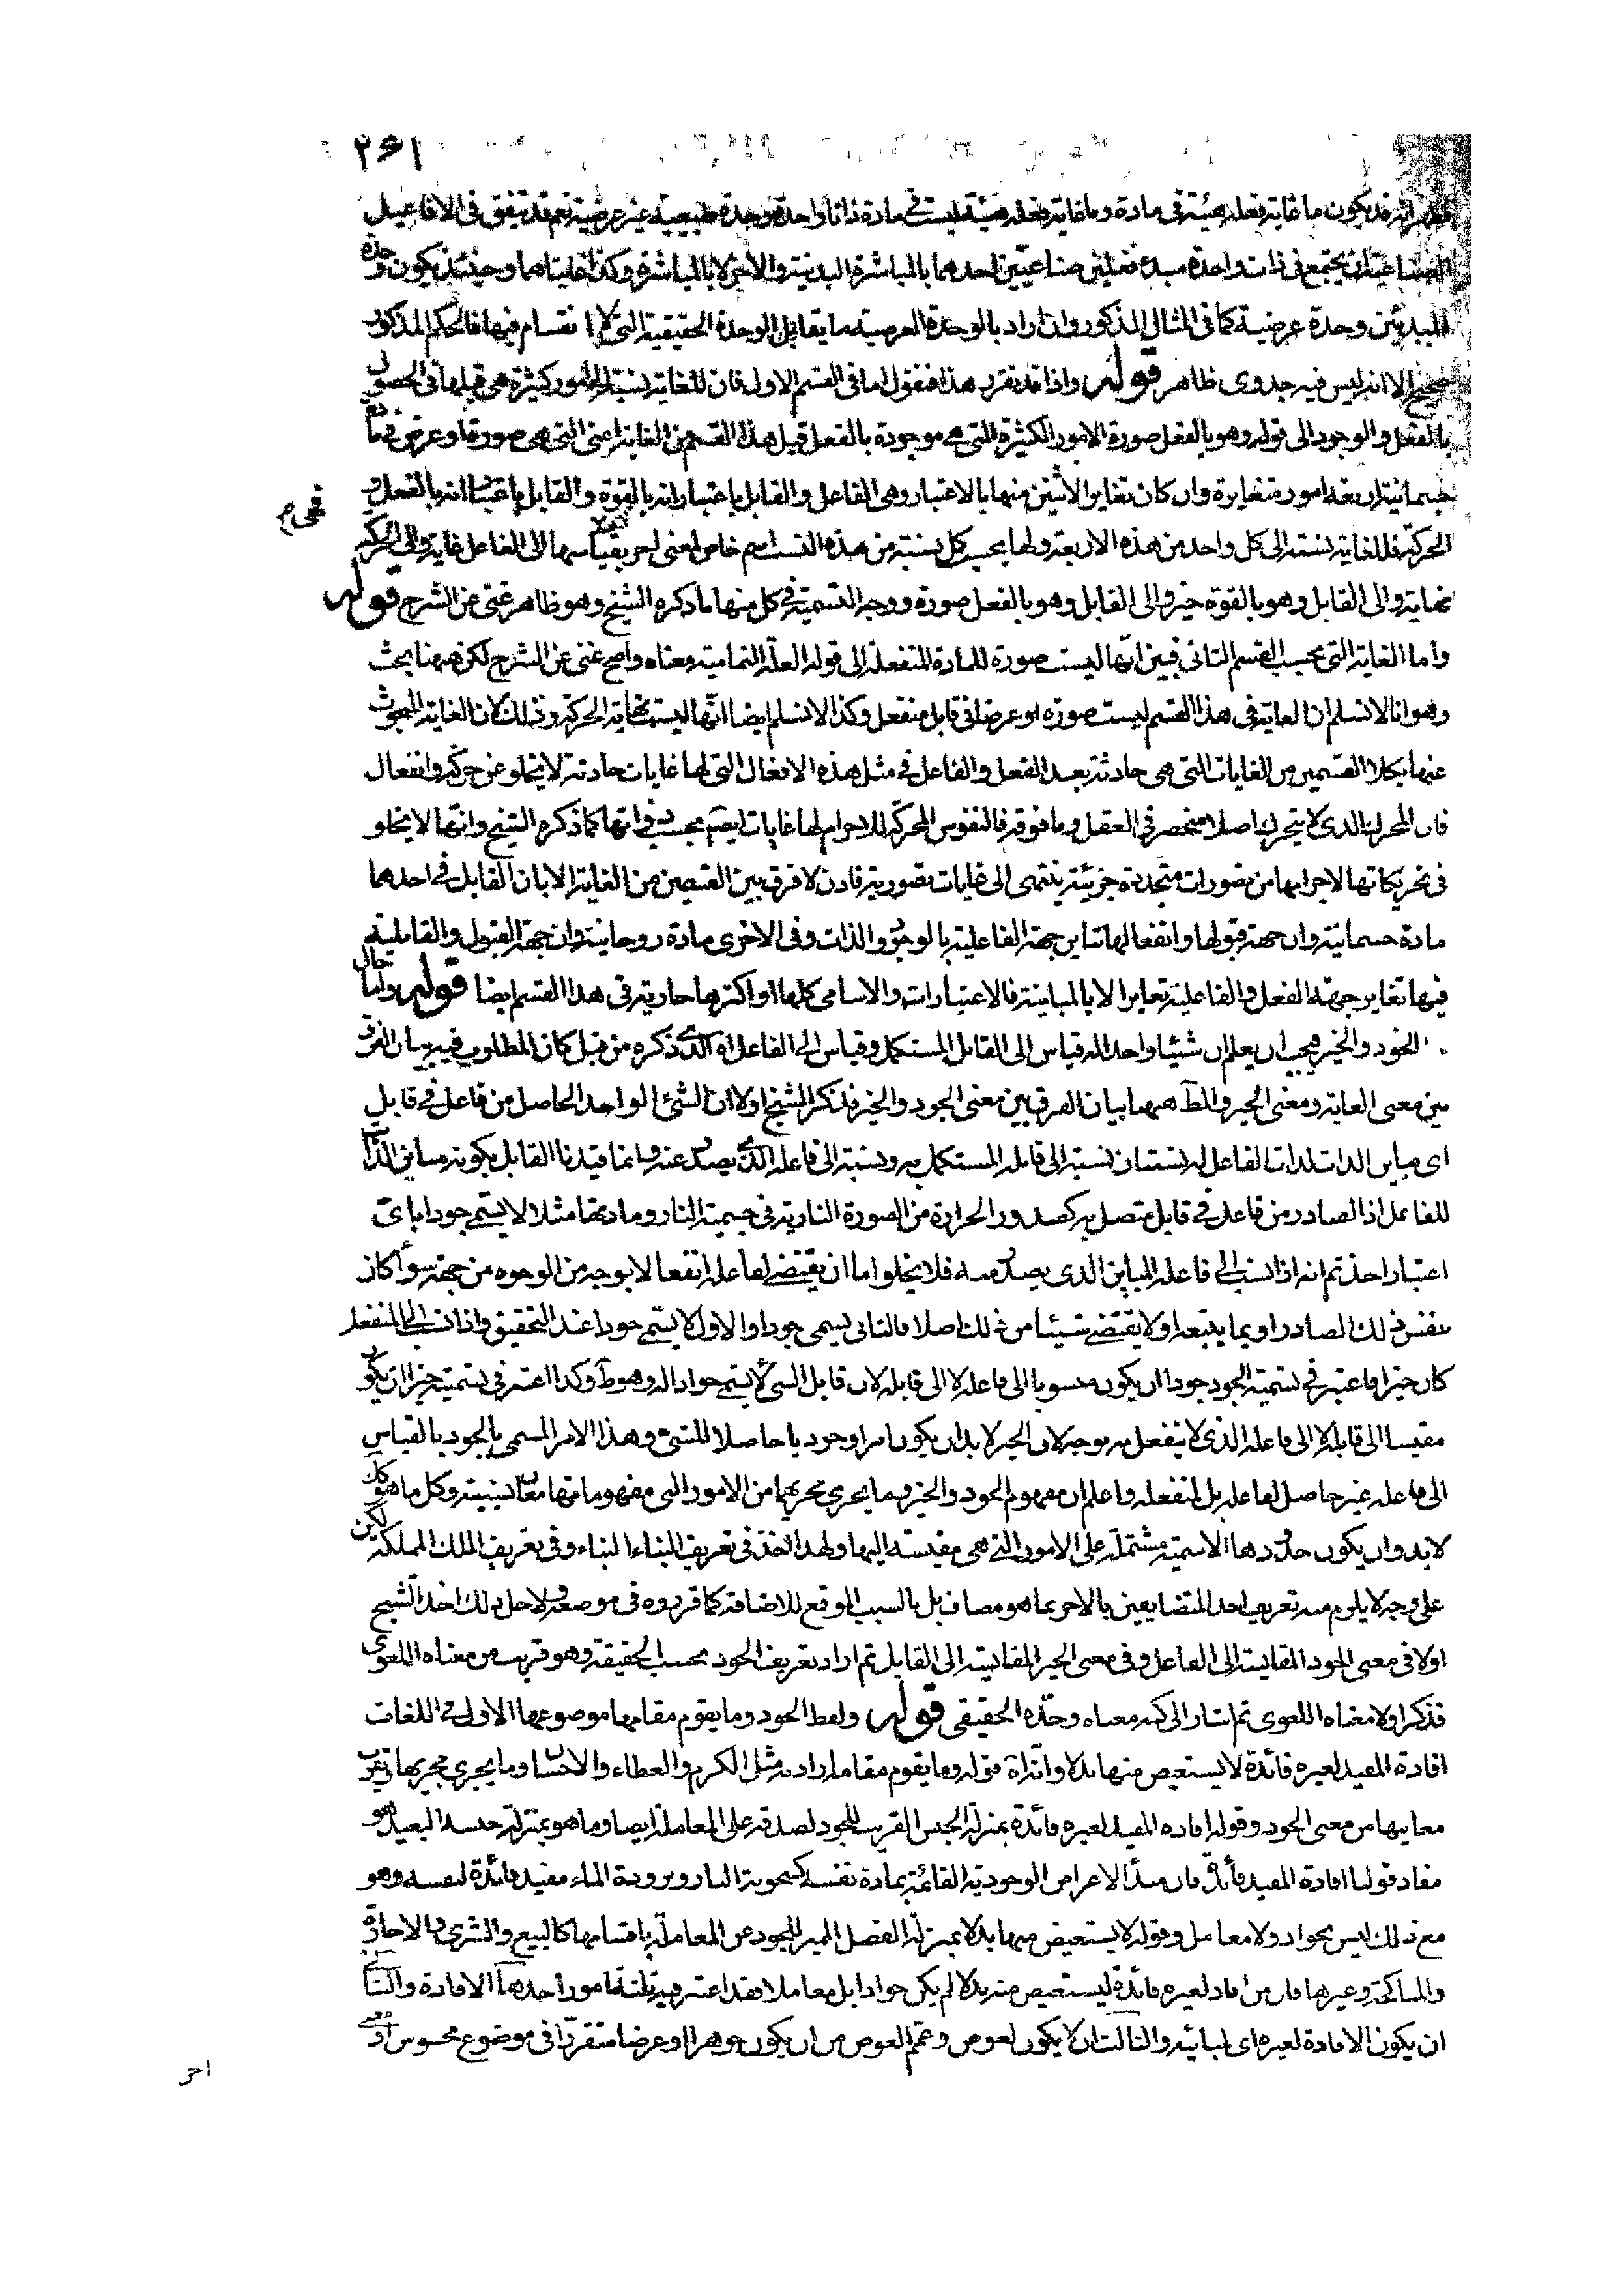 ٢٦١
قد يكون ما غايته بفعله هيئة فى مادة وما غايته بفعله هيئة ليست فى مادة ذاتا واحدة وحدة طبيعية غير عرضية نعم قد يتفق فى الافاعيل
الصناعية ان يجتمع فى ذات واحدة مبدء فعلين صناعيين احدهما بالمباشرة البدنية والاخر لا بالمباشرة وكذا غايتاهما وحينئذ يكون وحدة
المبدئين وحدة عرضية كما فى المثال المذكور وان اراد بالوحدة العرضية ما يقابل الوحدة الحقيقية التى لا انقسام فيها فالحكم المذكور
صحيح الا انه ليس فيه جدوى ظاهر قوله واذا قد تقرر هذا فنقول اما فى القسم الاول فان للغاية نسبة الى امور كثيرة هى قبلها فى الحصول
بالفعل والوجود الى قوله وهو بالفعل صورة الامور الكثيرة التى هى موجودة بالفعل قبل هذا القسم من الغاية اعنى التى هى صورة او عرض فى مادة
جسمانية اربعة امور متغايرة وان كان تغاير الاثنين منها بالاعتبار وهى الفاعل والقابل باعتبار انه بالقوة والقابل باعتبار انه بالفعل و
الحركة فللغاية نسبة الى كل واحد من هذه الاربعة ولها بحسب كل نسبة من هذه النسب اسم خاص لمعنى اخر بقياسها الى الفاعل غاية والى الحركة
فهى
نهاية والى القابل وهو بالقوة خير والى القابل وهو بالفعل صورة ووجه التسمية فى كل منها ما ذكره الشيخ وهو ظاهر غنى عن الشرح قوله
واما الغاية التى بحسب القسم الثانى فبين انها ليست صورة للمادة المنفعلة الى قوله العلة التمامية معناه واضح غنى عن الشرح لكن ههنا بحث
وهو انا لا نسلم ان الغاية فى هذا القسم ليست صورة او عرضا فى قابل منفعل وكذا لا نسلم ايضا انها ليست نهاية الحركة وذلك لان الغاية المبحوث
عنها بكلا القسمين من الغايات التى هى حادثة بعد الفعل والفاعل فى مثل هذه الافعال التى لها غايات حادثة لا يخلو عن حركة وانفعال
فان المحرك الذى لا يتحرك اصلا منحصر فى العقل وما فوقه فالنفوس المحركة للاجرام لها غايات ايضا بحسب ذواتها كما ذكره الشيخ وانها لا يخلو
فى تحريكاتها لاجرامها من تصورات متجددة جزئية ينتهى الى غايات تصورية فاذن لا فرق بين القسمين من الغاية الا بان القابل فى احدهما
مادة جسمانية وان جهة قبولها وانفعالها تباين جهة الفاعلية بالوجود والذات وفى الاخرى مادة روحانية وان جهة القبول والقابلية
فيها تغاير جهة الفعل والفاعلية تغايرا لا بالمباينة فالاعتبارات والاسامى كلها او اكثرها جارية فى هذا القسم ايضا قوله واما حال
الجود والخير فيجب ان يعلم ان شيئا واحدا له قياس الى القابل المستكمل وقياس الى الفاعل اه الذى ذكره من قبل كان المطلوب فيه بيان الفرق
بين معنى الغاية ومعنى الخير والمط ههنا بيان الفرق بين معنى الجود والخير فذكر الشيخ اولا ان الشئ الواحد الحاصل من فاعل فى قابل
اى مباين الذات لذات الفاعل له نسبتان نسبة الى قابله المستكمل به ونسبة الى فاعله الذى يصدر عنه وانما قيدنا القابل بكونه مباين الذات
للفاعل اذ الصادر من فاعل فى قابل متصل به كصدور الحرارة من الصورة النارية فى جسمية النار ومادتها مثلا لا يسمى جودا باى
اعتبار اخذ ثم انه اذا نسب الى فاعله المباين الذى يصدر منه فلا يخلو اما ان يقتضى لفاعله انفعالا بوجه من الوجوه من جهة سواء كان
بنفس ذلك الصادر او بما يتبعه او لا يقتضى شيئا من ذلك اصلا فالثانى يسمى جودا والاول لا يسمى جودا عند التحقيق واذا نسب الى المنفعل
كان خيرا فاعتبر فى تسمية الجود جودا ان يكون منسوبا الى فاعله لا الى قابله لان قابل الشئ لا يسمى جوادا له وهو ظ وكذا اعتبر فى تسميته خيرا ان يكون
مقيسا الى قابله لا الى فاعله الذى لا ينفعل به بوجه لان الخير لا بد ان يكون امرا وجوديا حاصلا للشئ وهذا الامر المسمى بالجود بالقياس
الى فاعله غير حاصل لفاعله بل لمنفعله واعلم ان مفهوم الجود والخير وما يجرى مجريهما من الامور التى مفهوماتها معان نسبية وكل ما هو كك
لا بد وان يكون حدودها الاسمية مشتملة على الامور التى هى مقيسة اليها ولهذا اخذ فى تعريف البناء البناء وفى تعريف الملك المملكة لكن
على وجه لا يلزم منه تعريف احد المتضايفين بالاخر بما هو مضاف بل بالسبب الموقع للاضافة كما قرروه فى موضعه ولاجل ذلك اخذ الشيخ
اولا فى معنى الجود المقايسة الى الفاعل وفى معنى الخير المقايسة الى القابل ثم اراد تعريف الجود بحسب الحقيقة وهو قريب من معناه اللغوى
فذكر اولا معناه اللغوى ثم اشار الى كنه معناه وحده الحقيقى قوله ولفظ الجود وما يقوم مقامها موضوعها الاول فى اللغات
افادة المفيد لغيره فائدة لا يستعيض منها بدلا وانه اه قوله وما يقوم مقامها اراد به مثل الكرم والعطاء والاحسان وما يجرى مجريها ويقرب
معانيها من معنى الجود وقوله افادة المفيد لغيره فائدة بمنزلة الجنس القريب للجود لصدقه على المعاملة ايضا وما هو بمنزلة جنسه البعيد هو
مفاد قولنا افادة المفيد فائدة فان مبدأ الاعراض الوجودية القائمة بمادة نفسه كسخونة النار وبرودة الماء مفيد فائدة لنفسه وهو
مع ذلك ليس بجواد ولا معامل وقوله لا يستعيض منها بدلا بمنزلة الفصل المميز للجود عن المعاملة باقسامها كالبيع والشرى والاجارة
والمناكحة وغيرها فان من افاد لغيره فائدة ليستعيض منه بدلا لم يكن جوادا بل معاملا فقد اعتبر فيه ثلثة امور احدها الافادة والثانى
ان يكون الافادة لغيره اى لمباينه والثالث ان لا يكون لعوض وعمم العوض من ان يكون جوهرا او عرضا متقررا فى موضوع محسوس او